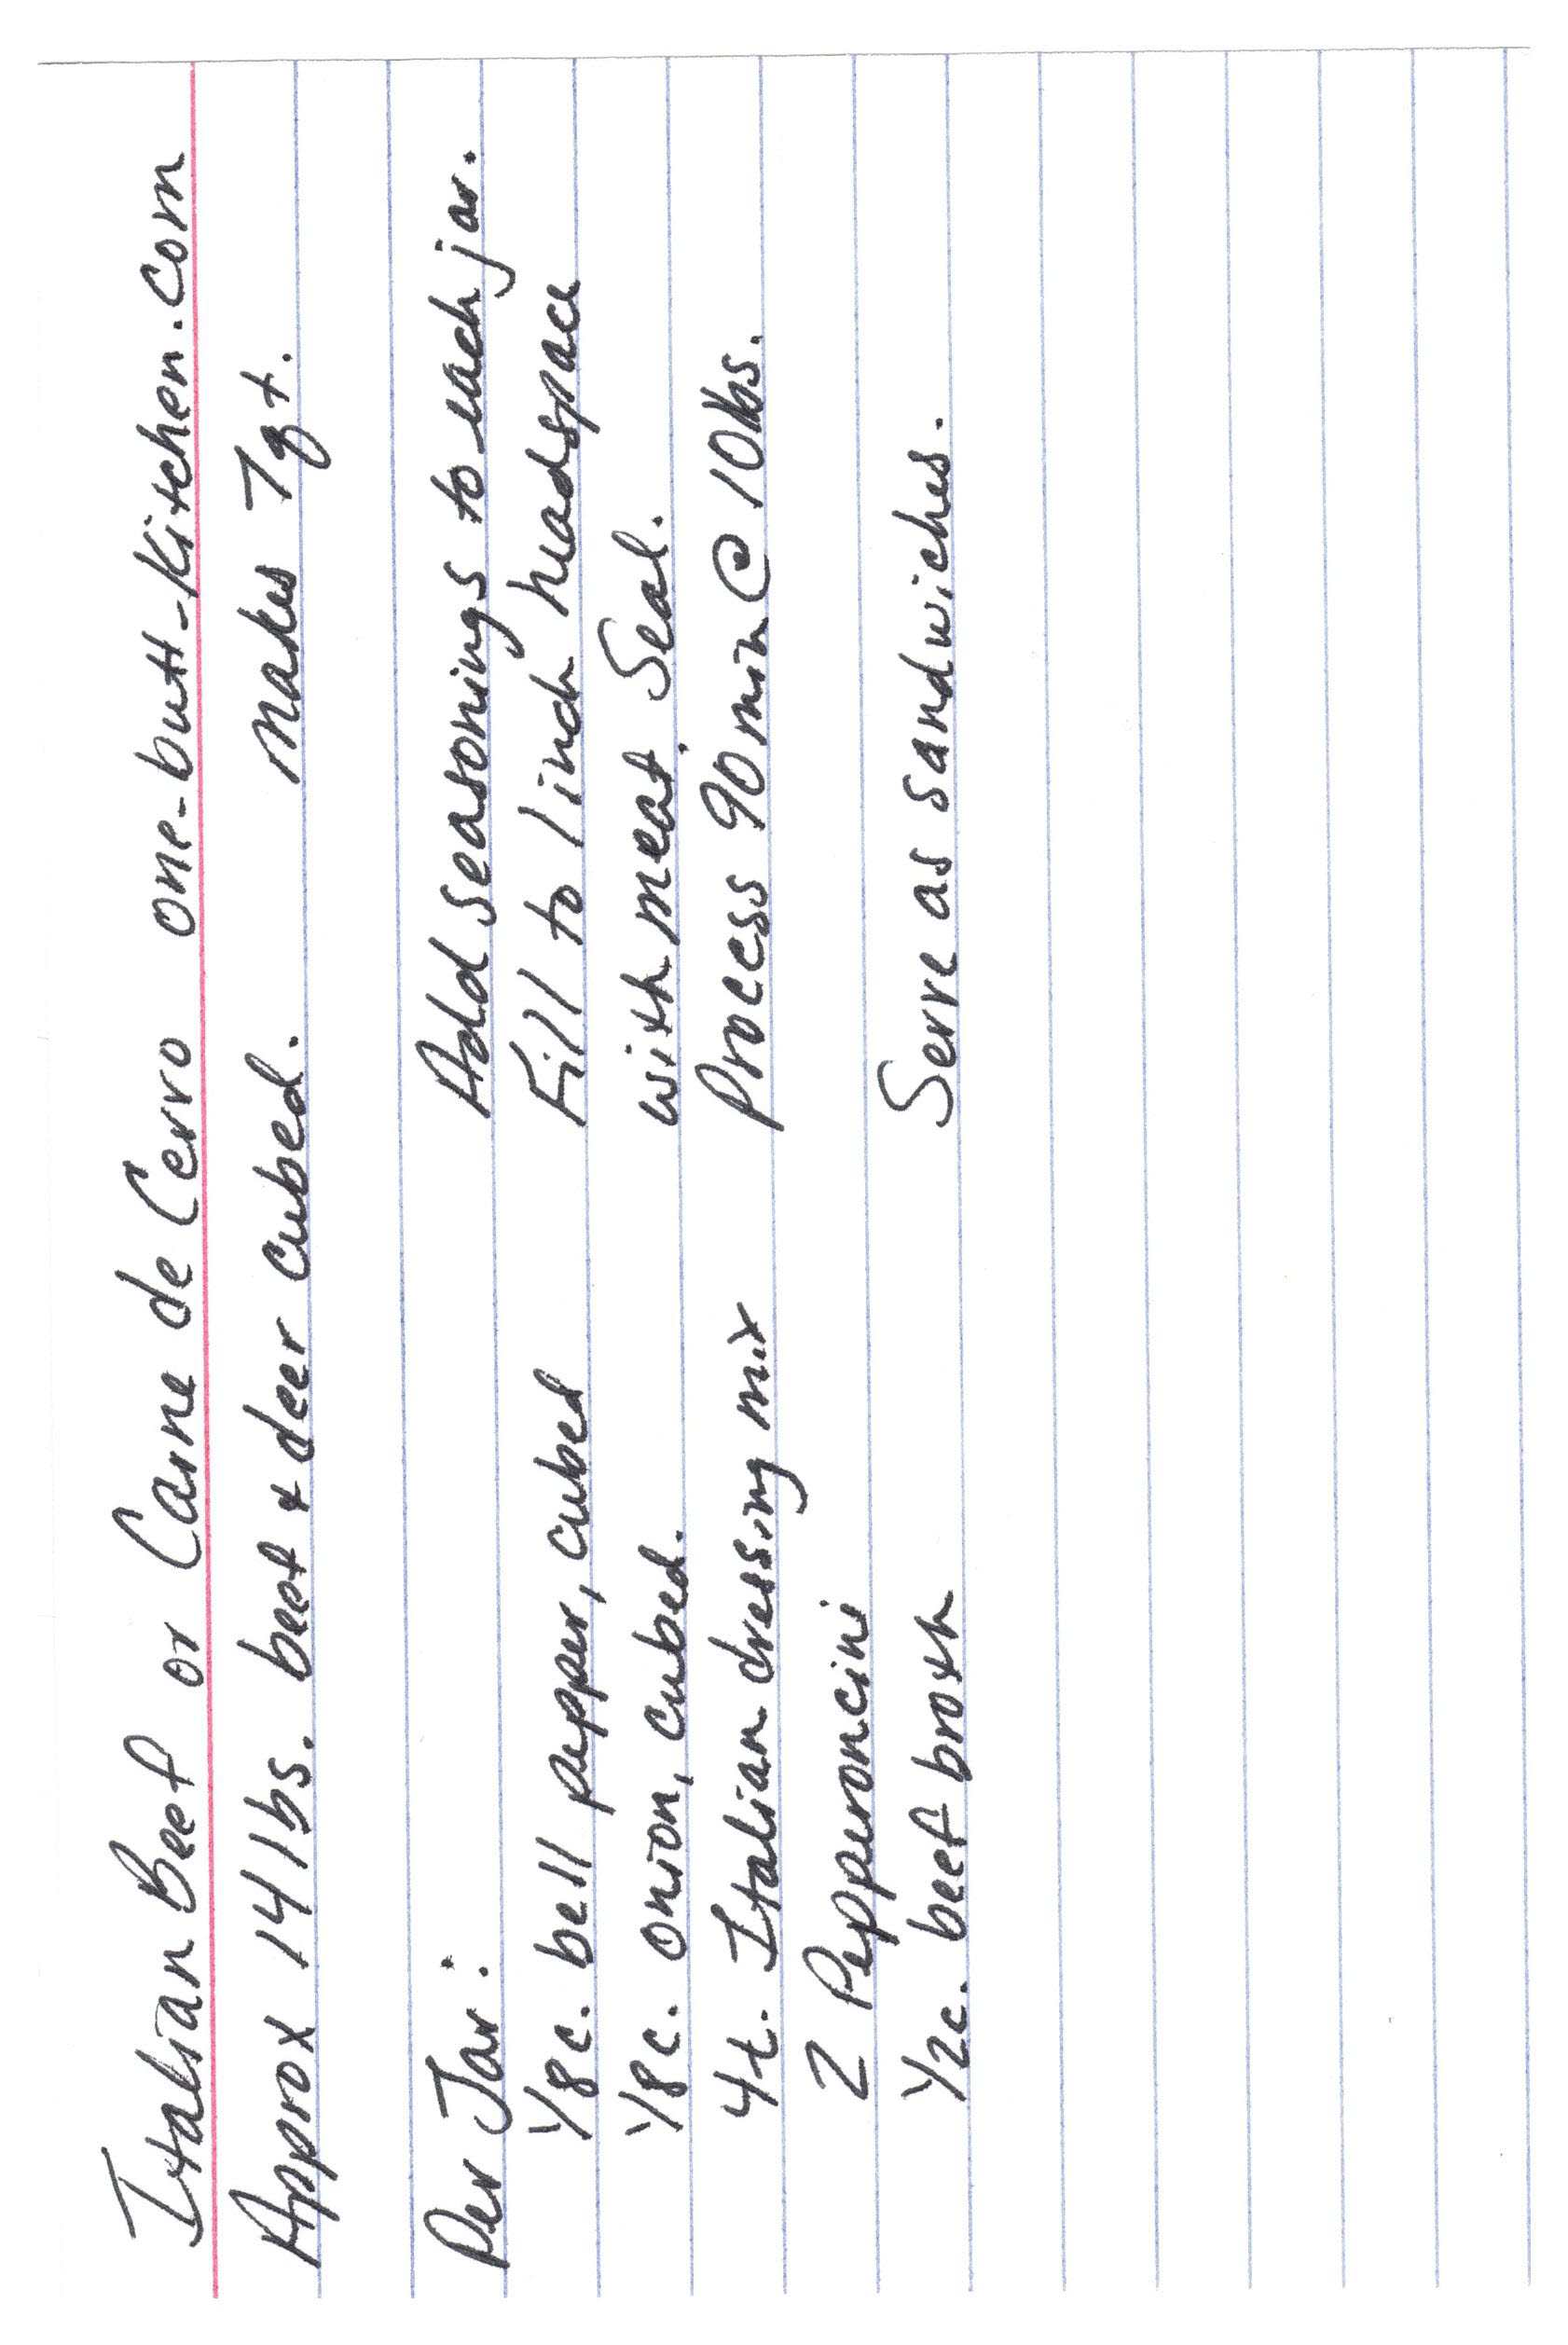 Italian Beef or Carne de Cervo one-butt-kitchen.com
Approx 14 lbs. beef & deer cubed. Makes 7qt.
Per Jar:
1/8 c. bell pepper, cubed
1/8 c. onion, cubed.
4t. Italian dressing mix
2 Pepperoncini
1/2 c. beef broth
Add seasonings to each jar.
Fill to 1 inch headspace
with meat. Seal.
Process 90 min @ 10 lbs.
Serve as sandwiches.